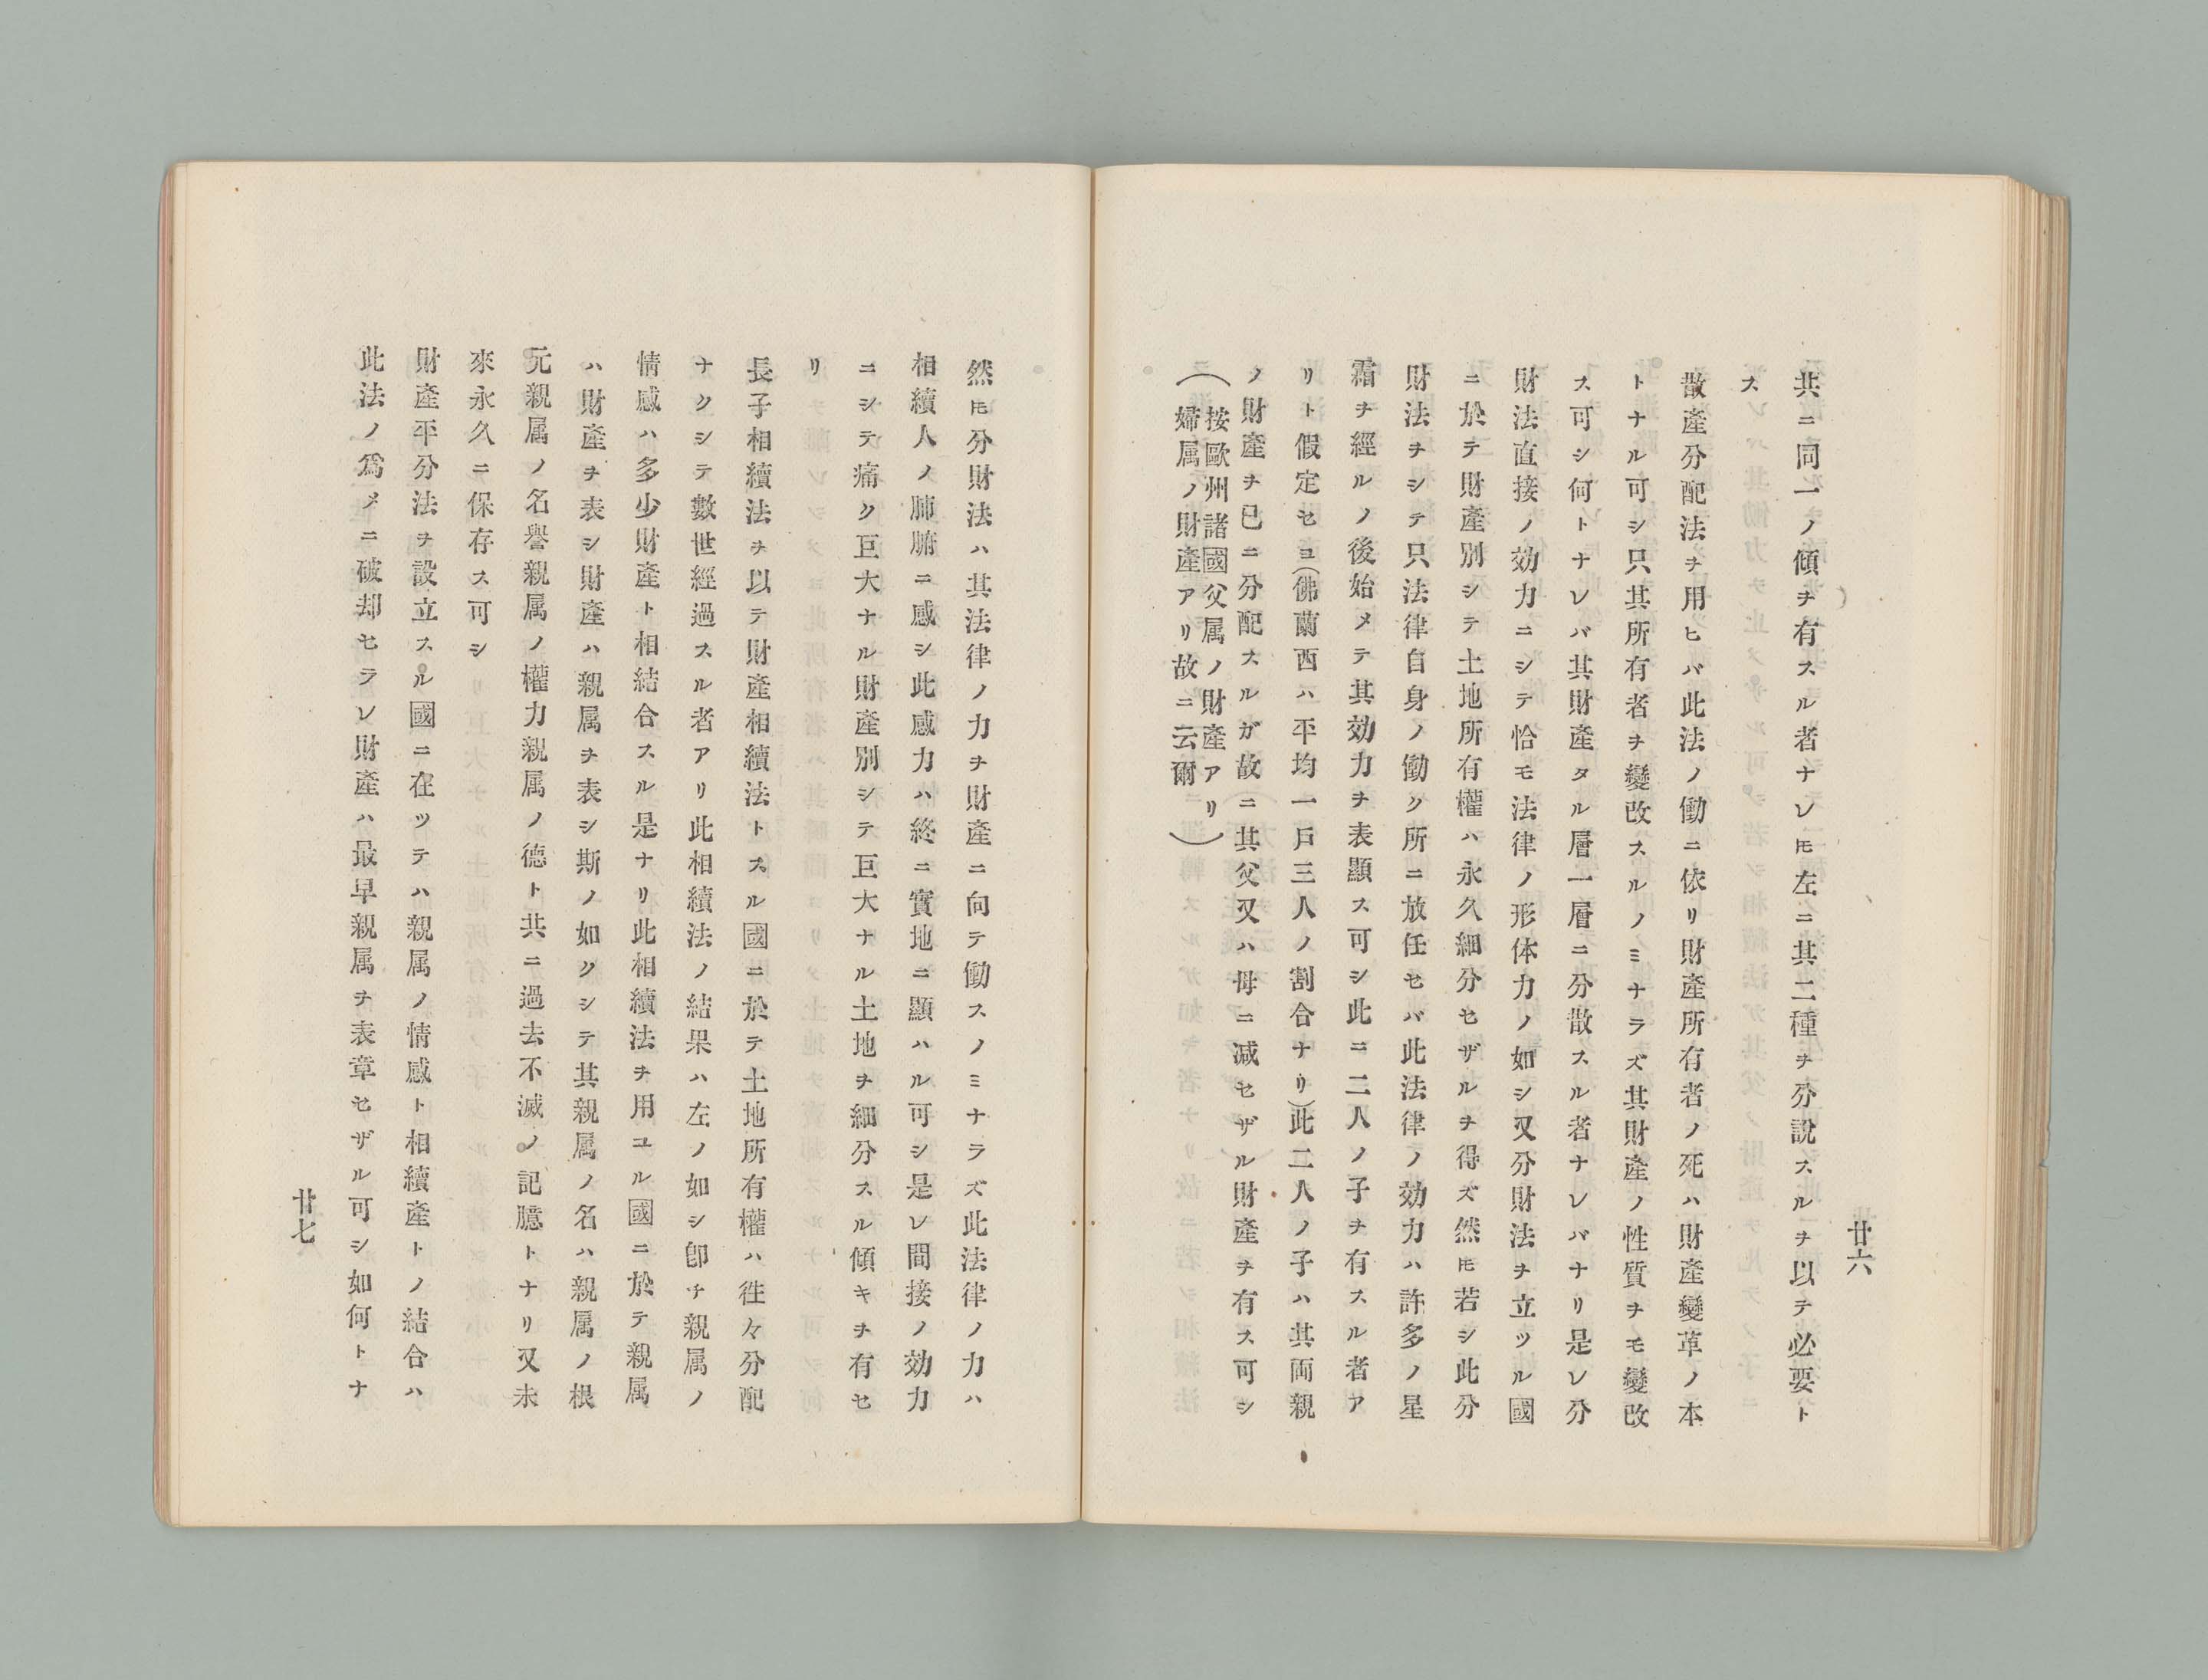 廿六
共ニ同一ノ傾ヲ有スル者ナレ𪜈左ニ其二種ヲ分說スルヲ以テ必要ト
ス
散產分配法ヲ用ヒバ此法ノ働ニ依リ財產所有者ノ死ハ財產變革ノ本
トナル可シ只其所有者ヲ變改スルノミナラズ其財產ノ性質ヲモ變改
ス可シ何トナレバ其財產タル層一層ニ分散スル者ナレバナリ是レ分
財法直接ノ効力ニシテ恰モ法律ノ形体力ノ如シ又分財法ヲ立ツル國
ニ於テ財產別シテ土地所有權ハ永久細分セザルヲ得ズ然𪜈若シ此分
財法ヲシテ只法律自身ノ働ク所ニ放任セバ此法律ノ効力ハ許多ノ星
霜ヲ經ルノ後始メテ其効力ヲ表顯ス可シ此ニ二人ノ子ヲ有スル者ア
リト假定セヨ(佛蘭西ハ平均一戶三人ノ割合ナリ)此二人ノ子ハ其両親
ノ財產ヲ已ニ分配スルガ故ニ其父又ハ母ニ减セザル財產ヲ有ス可シ
(按歐州諸國父属ノ財產アリ
婦属ノ財產アリ故ニ云爾)
然𪜈分財法ハ其法律ノ力ヲ財產ニ向テ働スノミナラズ此法律ノ力ハ
相續人ノ肺腑ニ感シ此感力ハ終ニ實地ニ顯ハル可シ是レ間接ノ効力
ニシテ痛ク巨大ナル財產別シテ巨大ナル土地ヲ細分スル傾キヲ有セ
リ
長子相續法ヲ以テ財產相續法トスル國ニ於テ土地所有權ハ徃々分配
ナクシテ數世經過スル者アリ此相續法ノ結果ハ左ノ如シ卽チ親属ノ
情感ハ多少財產ト相結合スル是ナリ此相續法ヲ用ユル國ニ於テ親属
ハ財產ヲ表シ財產ハ親属ヲ表シ斯ノ如クシテ其親属ノ名ハ親属ノ根
元親属ノ名譽親属ノ權力親属ノ德ト共ニ過去不滅ノ記臆トナリ又未
來永久ニ保存ス可シ
財產平分法ヲ設立スル國ニ在ツテハ親属ノ情感ト相續產トノ結合ハ
此法ノ爲メニ破却セラレ財產ハ最早親属ヲ表章セザル可シ如何トナ
廿七